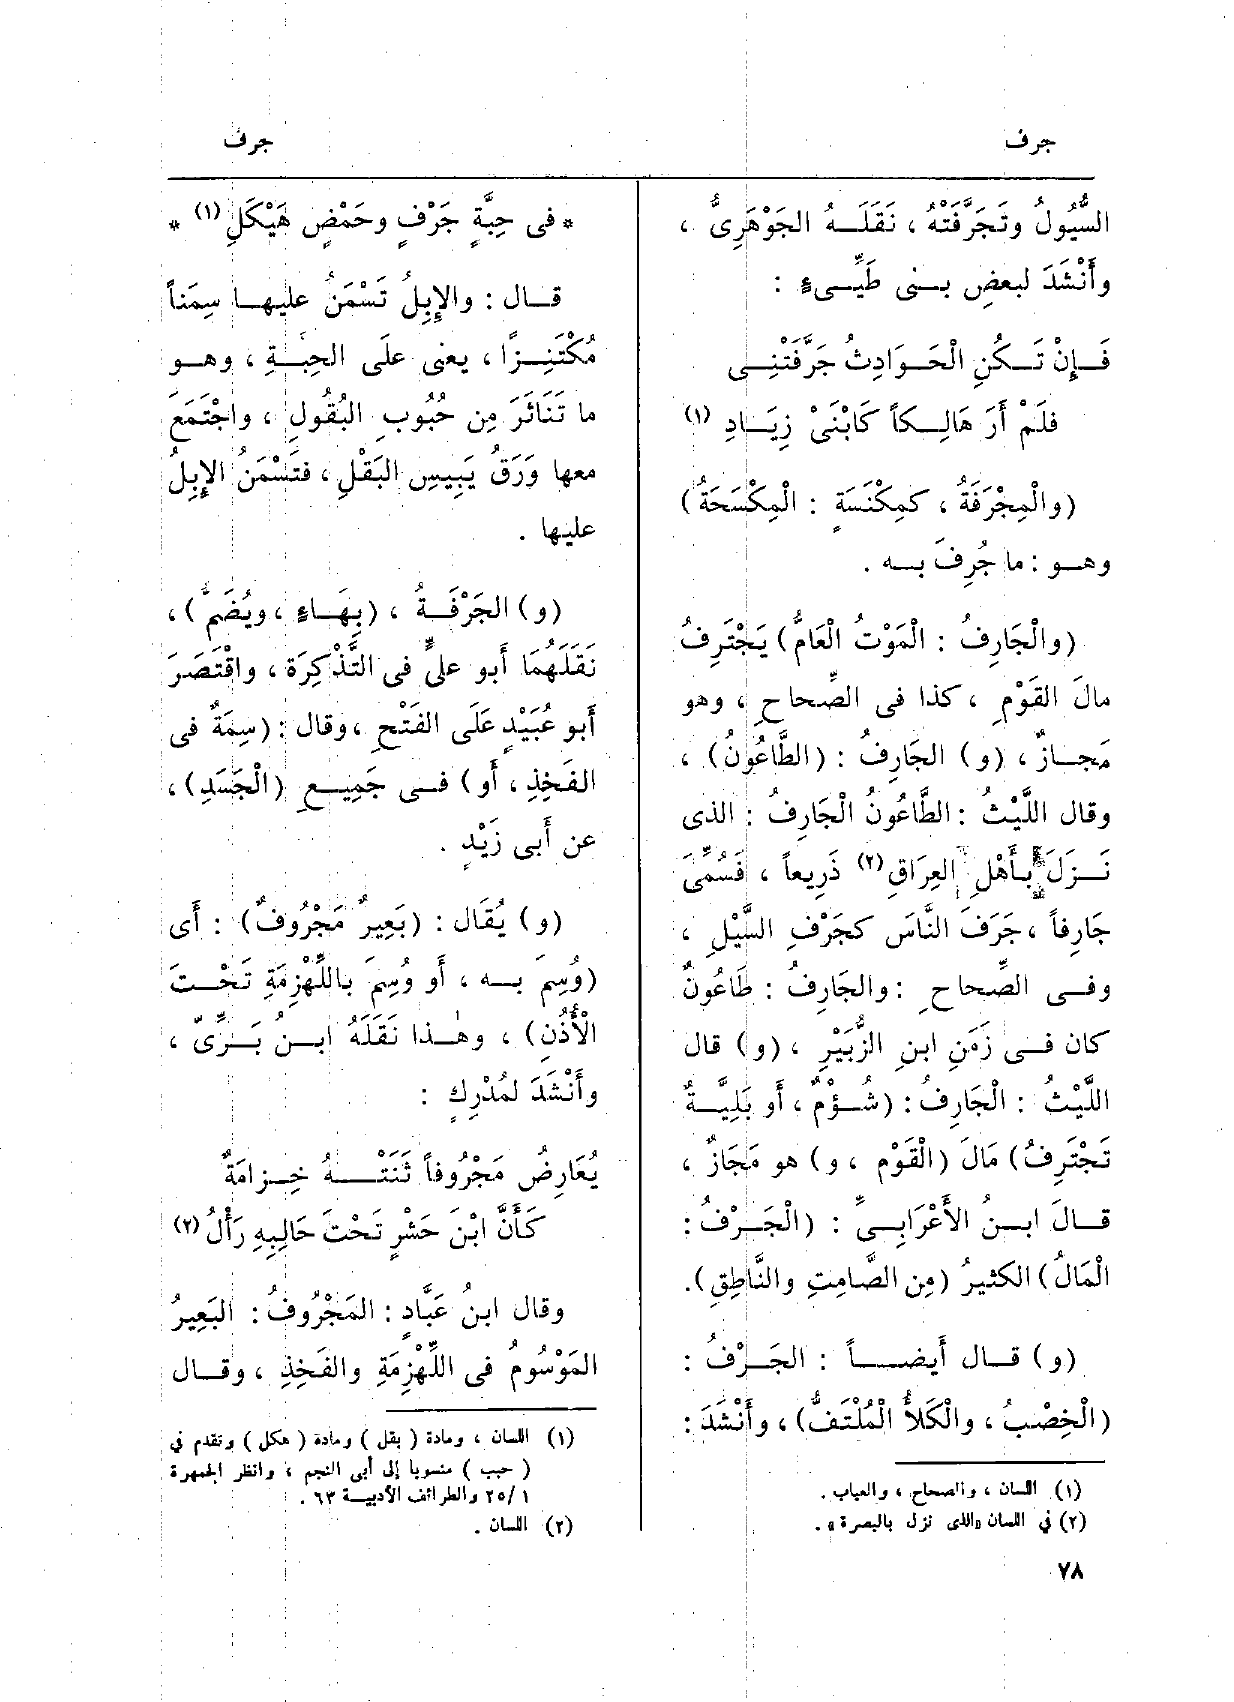 جرف
جرف
السُّيُولُ وتَجَرَّفَتْهُ ، نَقَلَـــهُ الجَوْهَرِىُّ ،
وأَنْشَدَ لبعضِ بـــنى طَيِّـىءٍ :
فَــإِنْ تَــكُنِ الْحَــوَادِثُ جَرَّفَتْنِــى
فلَمْ أَرَ هَالِــكاً كَابْنَىْ زِيَــادِ (١)
(والْمِجْرَفَةُ ، كمِكْنَسَةٍ : الْمِكْسَحَةُ)
وهــو : ما جُرِفَ بــه .
(والْجَارِفُ : الْمَوْتُ الْعَامُّ) يَجْتَرِفُ
مالَ القَوْمِ ، كذا فى الصِّحاحِ ، وهو
مَجــازٌ ، (و) الجَارِفُ : (الطَّاعُونُ) ،
وقال اللَّيْثُ : الطَّاعُونُ الْجَارِفُ : الذى
نَــزَلَ بأَهْلِ العِرَاقِ (٢) ذَرِيعاً ، فَسُمِّىَ
جَارِفاً ، جَرَفَ النَّاسَ كجَرْفِ السَّيْلِ ،
وفــى الصِّحاحِ : والجَارِفُ : طَاعُونٌ
كان فــى زَمَنِ ابنِ الزُّبَيْرِ ، (و) قال
اللَّيْثُ : الْجَارِفُ : (شُــؤْمٌ ، أَو بَلِيَّــةٌ
تَجْتَرِفُ) مَالَ (الْقَوْمِ ، و) هو مَجَازٌ ،
قــالَ ابــنُ الأَعْرَابِــىِّ : (الْجَــرْفُ :
الْمَالُ) الكثيرُ (مِن الصَّامِتِ والنَّاطِقِ).
(و) قــال أَيضــــاً : الجَــرْفُ :
(الْخِصْبُ ، والْكَلأُ الْمُلْتَفُّ) ، وأَنْشَدَ :
(١) اللسان ، والصحاح ، والعباب .
(٢) فى اللسان «الذى نزل بالبصرة» .
٧٨
* فى حِبَّةٍ جَرْفٍ وحَمْضٍ هَيْكَلِ (١) *
قــال : والإِبِلُ تَسْمَنُ عليهــا سِمَناً
مُكْتَنِــزًا ، يعنى علَى الحِبَّــةِ ، وهــو
ما تَنَاثَرَ مِن حُبُوبِ البُقُولِ ، واجْتَمَعَ
معها وَرَقُ يَبِيسِ البَقْلِ ، فتَسْمَنُ الإِبِلُ
عليها .
(و) الجَرْفَــةُ ، (بِهَــاءٍ ، ويُضَمُّ) ،
نَقَلَهُمَا أَبو علىٍّ فى التَّذْكِرَة ، واقْتَصَرَ
أَبو عُبَيْدٍ عَلَى الفَتْحِ ، وقال : (سِمَةٌ فى
الفَخِذِ ، أَو) فــى جَمِيــعِ (الْجَسَدِ) ،
عن أَبى زَيْدٍ .
(و) يُقَال : (بَعِيرٌ مَجْرُوفٌ) : أَى
(وُسِمَ بــه ، أَو وُسِمَ باللِّهْزِمَةِ تَحْــتَ
الْأُذُنِ) ، وهٰــذا نَقَلَهُ ابــنُ بَــرِّىٍّ ،
وأَنْشَدَ لمُدْرِكٍ :
يُعَارِضُ مَجْرُوفاً ثَنَتْــــهُ خِــزامَةٌ
كَأَنَّ ابْنَ حَشْرٍ تَحْتَ حَالِبِهِ رَأْلُ (٢)
وقال ابنُ عَبَّادٍ : المَجْرُوفُ : البَعِيرُ
المَوْسُومُ فى اللِّهْزِمَةِ والفَخِذِ ، وقــال
(١) اللسان ، ومادة ( بقل ) ومادة ( هكل ) وتقدم فى
( حبب ) منسوبا إلى أبى النجم ، وانظر الجمهرة
٢٥/١ والطرائف الأدبيــة ٦٣ .
(٢) اللسان .